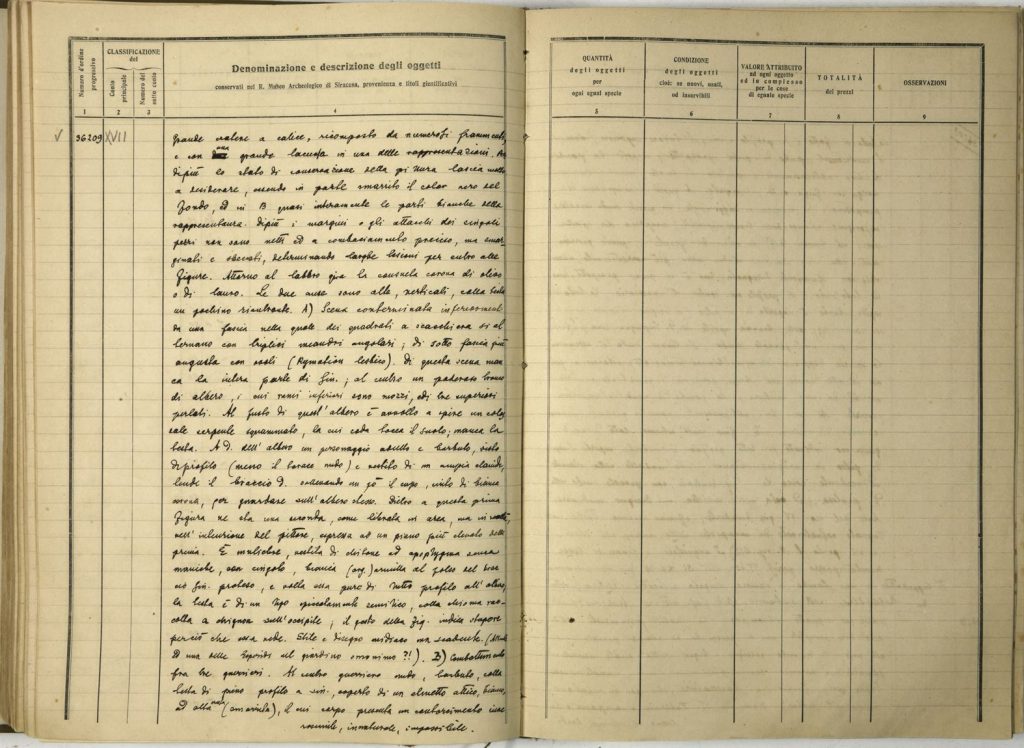 Numero d'ordine progressivo
CLASSIFICAZIONE del
Conto principale
Numero del sotto conto
Denominazione e descrizione degli oggetti
conservati nel R. Museo Archeologico di Siracusa, provenienza e titoli giustificativi
1 2 3 4
QUANTITÀ degli oggetti per ogni ugual specie
CONDIZIONE degli oggetti cioè: se nuovi, usati, od inservibili
VALORE ATTRIBUITO ad ogni oggetto ed in complesso per le cose di eguale specie
TOTALITÀ dei prezzi
OSSERVAZIONI
5 6 7 8 9
√ 36209 XVII
Grande cratere a calice, ricomposto da numerosi frammenti,
e con una grande lacuna in una delle rappresentazioni.
dipiù lo stato di conservazione della pittura lascia molto
a desiderare, essendo in parte smarrito il color nero del
fondo, ed in B quasi interamente le parti bianche della
rappresentanza. Dipiù i margini o gli attacchi dei singoli
pezzi non sono netti ed a combaciamento preciso, ma emar-
ginati e sbeccati, determinando larghe lesioni per entro alle
figure. Attorno al labbro gira la consueta corona di olivo
o di lauro. Le due anse sono alte, verticali, colla testa
un pochino rientrante. A) Scena conterminata inferiorment
da una fascia nella quale dei quadrati a scacchiera si al
ternano con triplici meandri angolari; di sotto fascia più
angusta con ovoli (Kymation lesbico). Di questa scena man
ca la intera parte di sin.; al centro un poderoso tronco
di albero, i cui rami inferiori sono mozzi, ed i tre superiori
Al fusto di quest'albero è avvolto a spire un colos
sale serpente squammato, la cui coda tocca il suolo; manca la
testa. A D. dell'albero un personaggio adulto e barbuto, visto
di profilo (meno il torace nudo) e vestito di un ampia clamide,
tende il braccio D. sollevando un po' il capo, cinto di bianca
corona, per guardare sull'albero stesso. Dietro a questa prima
figura ne sta una seconda, come librata in aria, ma in realtà,
nell'intenzione del pittore, espressa ad un piano più elevato della
prima. È muliebre, vestita di chitone ad apoptygma senza
maniche, con cingolo, bianca (arg.) armilla al polso del brac
cio sin. proteso, e volta essa pure di tutto profilo all'albero,
la testa è di un tipo spiccatamente semitico, colla chioma rac-
colta a chignon sull'occipite; il gesto della fig. indica stupore
per ciò che essa vede. Stile e disegno mediocre ma scadente.
ed una delle Esperidi nel giardino omonimo ?!). B) Combattimento
fra tre guerrieri. Al centro guerriero nudo, barbuto, colla
testa di pieno profilo a sin., coperto di un elmetto attico, bianco,
ed asta (smarrita), il cui corpo presenta un contorcimento inve
rosimile, innaturale, impossibile.